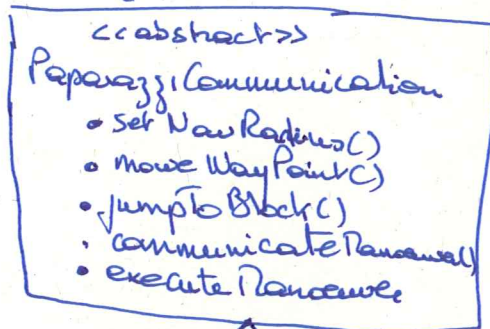 <<abstract>>
PaparazziCommunication
• setNavRadius()
• moveWayPoint()
• jumpToBlock()
• communicateManoeuvre()
• executeManoeuvre